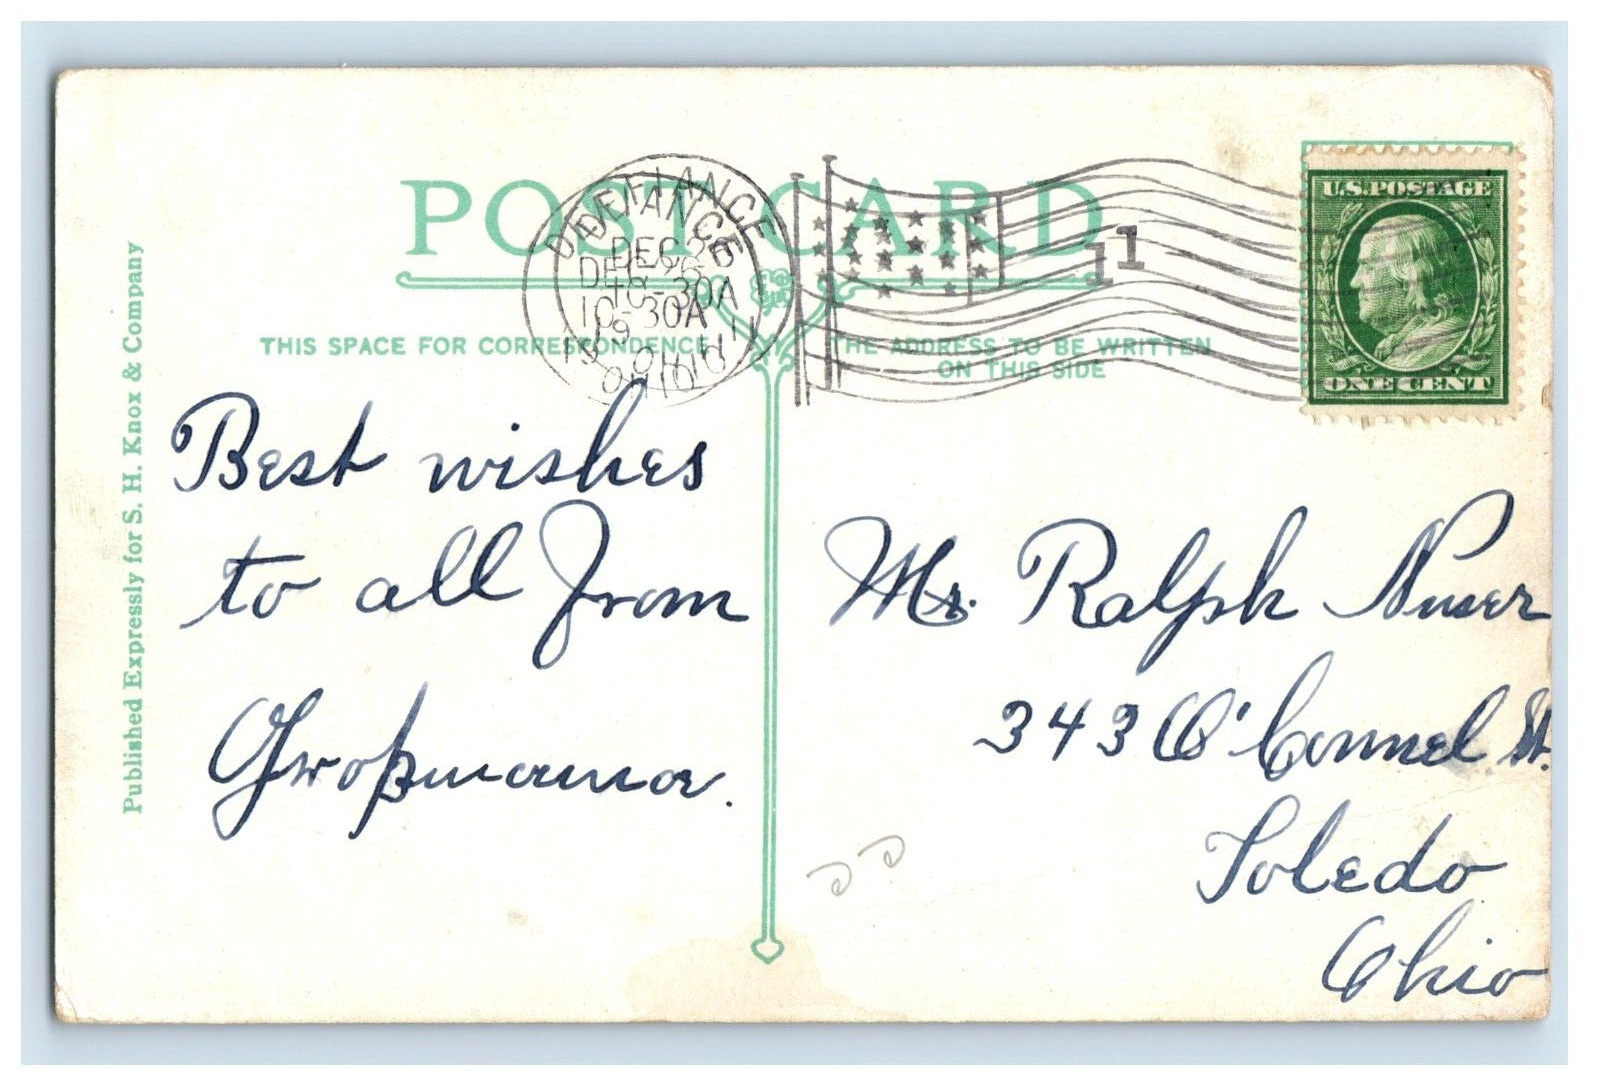 POST CARD
DEFIANCE
DEC 26
10-30A
OHIO
11
U.S.POSTAGE
ONE CENT
THIS SPACE FOR CORRESPONDENCE
THE ADDRESS TO BE WRITTEN
ON THIS SIDE
Published Expressly for S. H. Knox & Company
Best wishes
to all from
Großmama.
Mr. Ralph Nuser
343 O'Connel St.
Toledo
Ohio